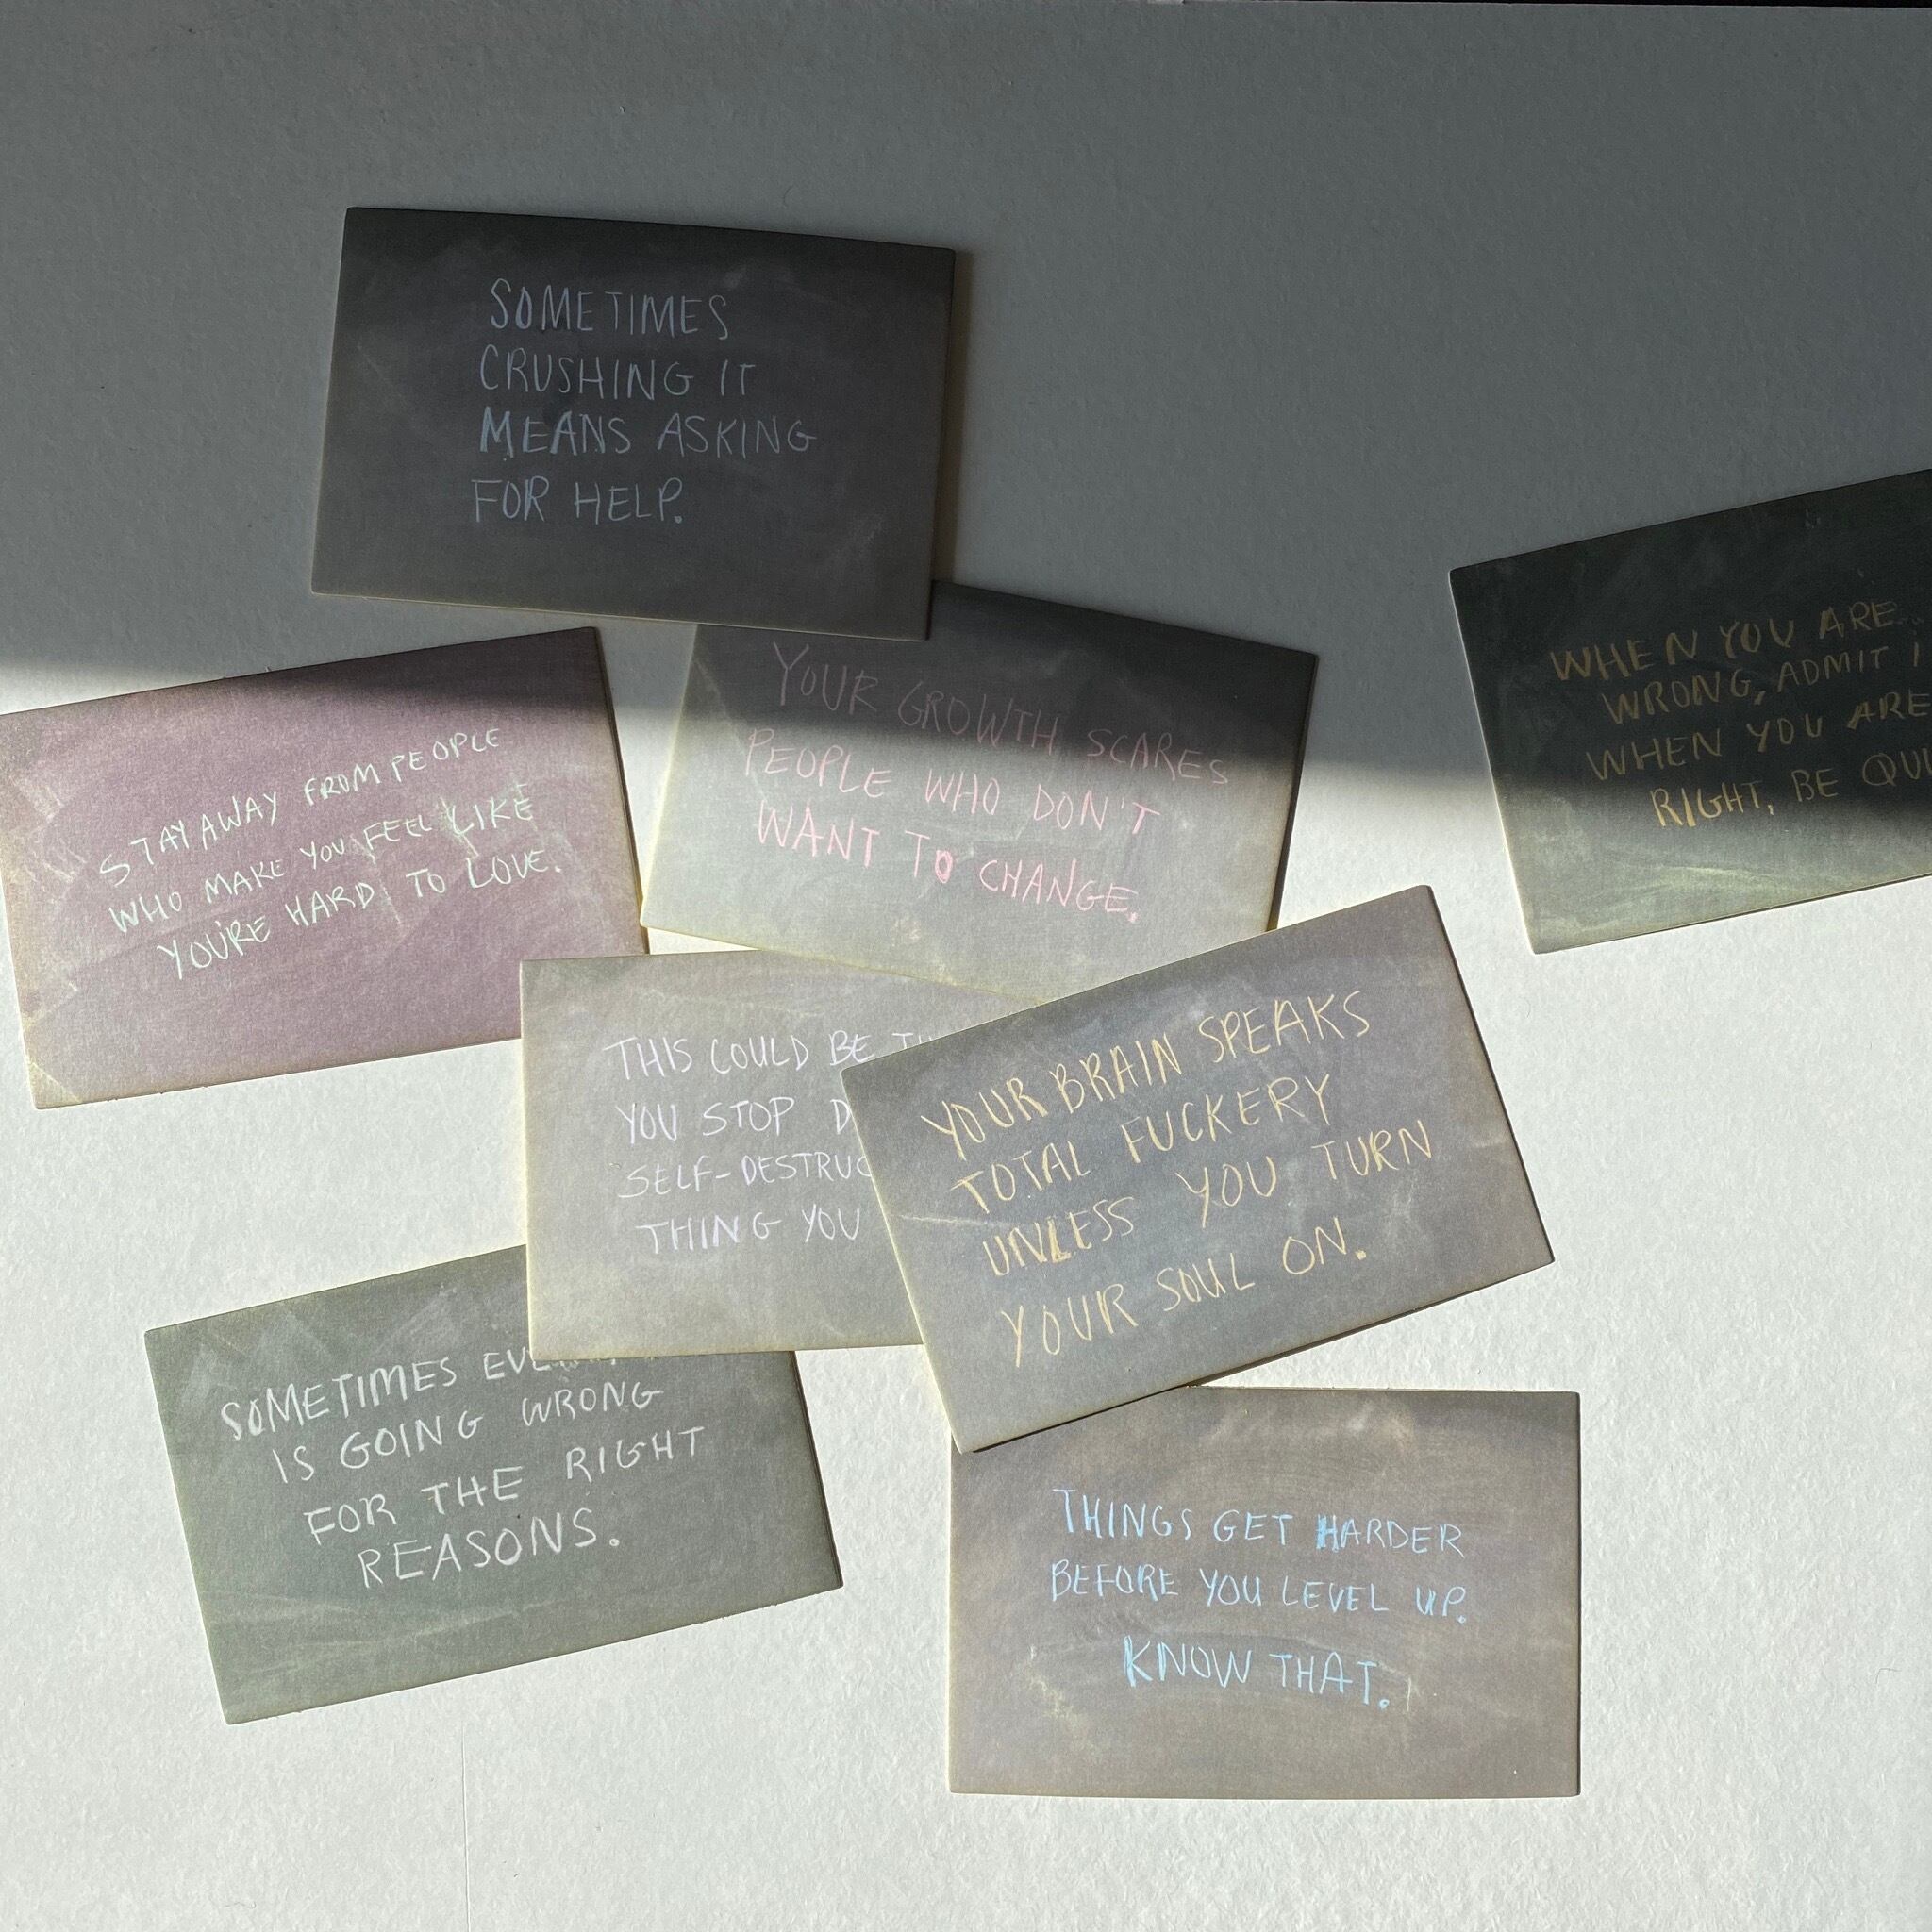 SOMETIMES
CRUSHING IT
MEANS ASKING
FOR HELP.
YOUR GROWTH SCARES
PEOPLE WHO DON'T
WANT TO CHANGE.
WHEN YOU ARE
WRONG, ADMIT
WHEN YOU ARE
RIGHT, BE
STAY AWAY FROM PEOPLE
WHO MAKE YOU FEEL LIKE
YOU'RE HARD TO LOVE.
THIS COULD BE
YOU STOP
THING YOU
YOUR BRAIN SPEAKS
TOTAL FUCKERY
UNLESS YOU TURN
YOUR SOUL ON.
SOMETIMES
IS GOING WRONG
FOR THE RIGHT
REASONS.
THINGS GET HARDER
BEFORE YOU LEVEL UP.
KNOW THAT.